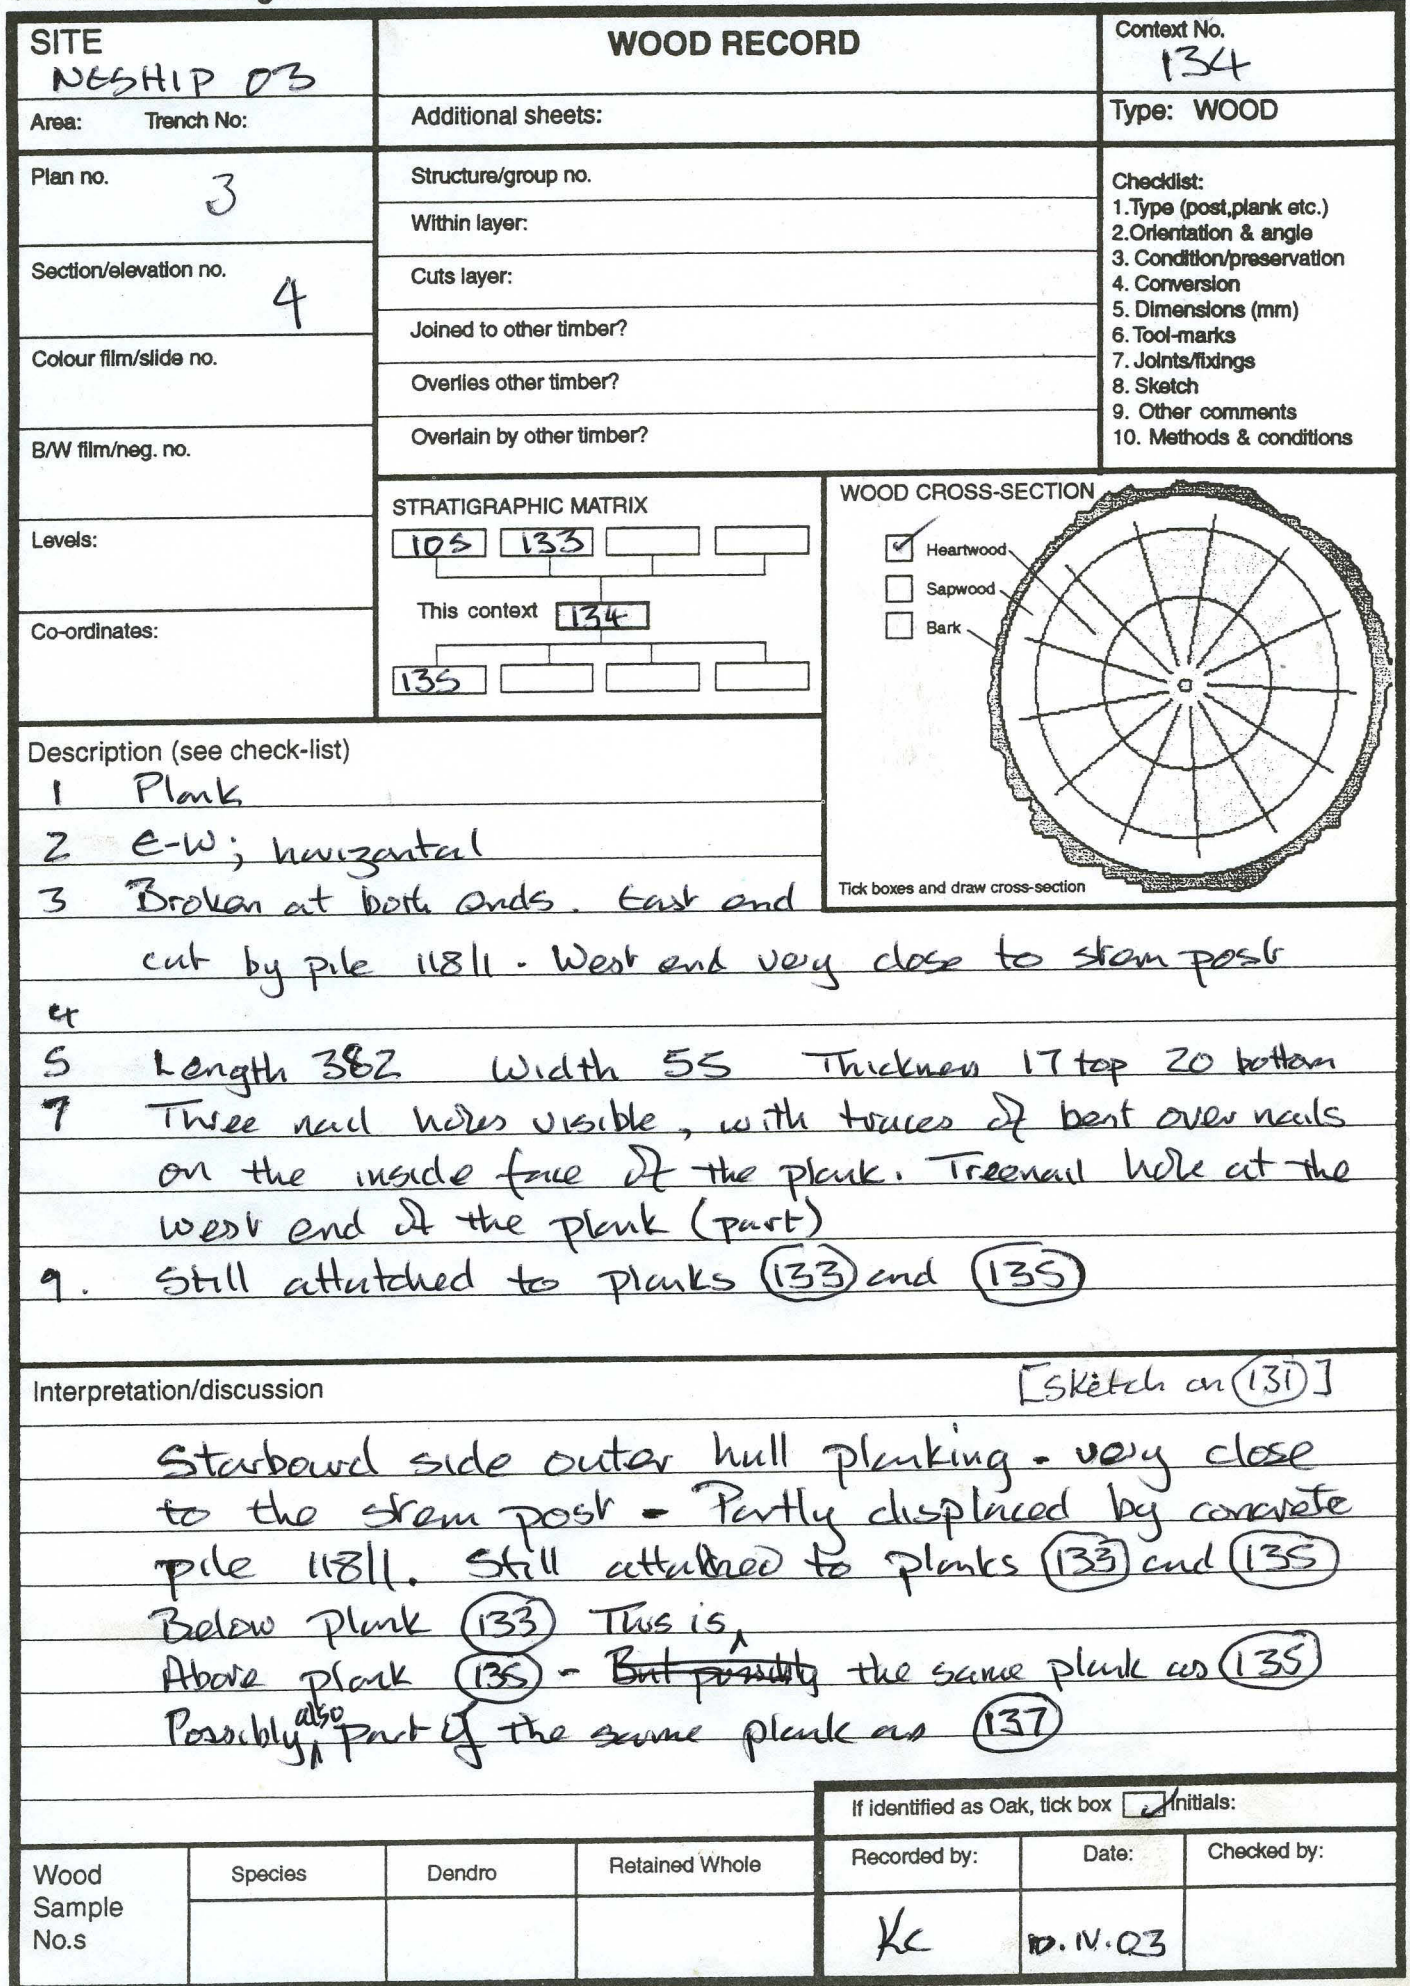 SITE
NESHIP 03
WOOD RECORD
Context No.
134
Area: Trench No:
Additional sheets:
Type: WOOD
Plan no.
3
Structure/group no.
Within layer:
Section/elevation no.
4
Cuts layer:
Joined to other timber?
Colour film/slide no.
Overlies other timber?
B/W film/neg. no.
Overlain by other timber?
Checklist:
1.Type (post,plank etc.)
2.Orientation & angle
3. Condition/preservation
4. Conversion
5. Dimensions (mm)
6. Tool-marks
7. Joints/fixings
8. Sketch
9. Other comments
10. Methods & conditions
Levels:
Co-ordinates:
STRATIGRAPHIC MATRIX
105 133
This context 134
135
WOOD CROSS-SECTION
Heartwood
Sapwood
Bark
Tick boxes and draw cross-section
Description (see check-list)
1 Plank
2 E-W; horizontal
3 Broken at both ends. East end
cut by pile 118/1. West end very close to stem post
4
5 Length 382 Width 55 Thickness 17 top 20 bottom
7 Three nail holes visible, with traces of bent over nails
on the inside face of the plank. Treenail hole at the
west end of the plank (part)
9. Still attatched to planks (133) and (135)
Interpretation/discussion
[Sketch on (131)]
Starboard side outer hull planking - very close
to the stem post - Partly displaced by concrete
pile 118/1. Still attatched to planks (133) and (135)
Below plank (133) This is
Above plank (135) - But possibly the same plank as (135)
Possibly also part of the same plank as (137)
If identified as Oak, tick box Initials:
Wood
Sample
No.s
Species
Dendro
Retained Whole
Recorded by:
KC
Date:
10.IV.03
Checked by: